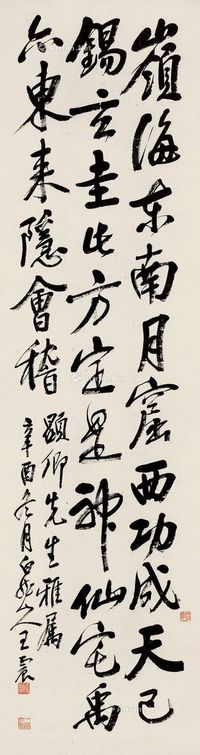 嶺海東南月窟西功成天已
錫玄圭此方定是神仙宅禹
亦東來隱會稽
顯仰先生雅屬
辛酉冬月白龍山人王震